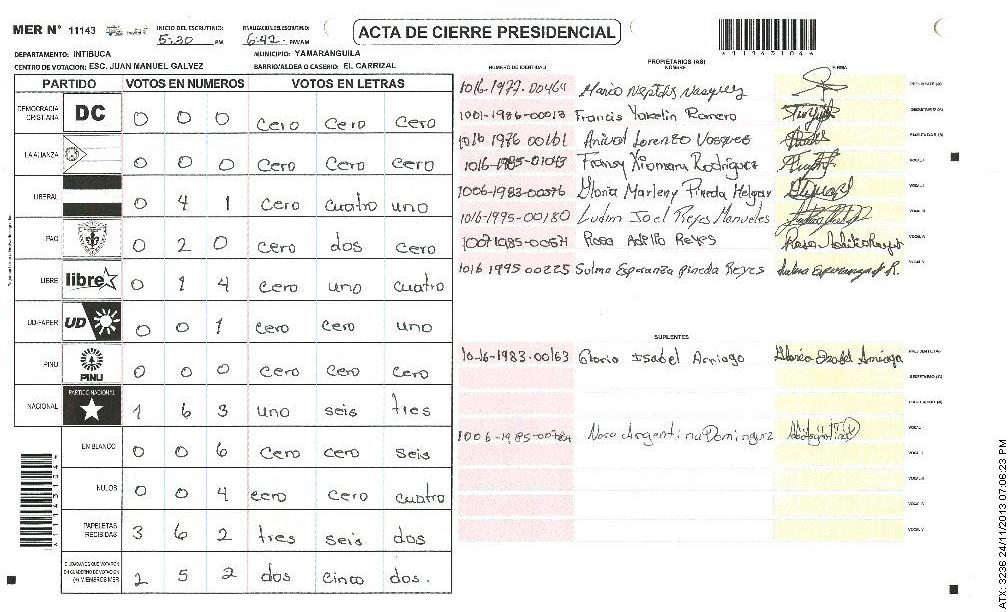 MER N° 11143
INICIO DEL ESCRUTINIO: 5:30 PM
FINALIZACION ESCRUTINIO: 6:42 PM/AM
ACTA DE CIERRE PRESIDENCIAL
DEPARTAMENTO: INTIBUCA
MUNICIPIO: YAMARANGUILA
CENTRO DE VOTACION: ESC. JUAN MANUEL GALVEZ
BARRIO/ALDEA O CASERIO: EL CARRIZAL
PARTIDO VOTOS EN NUMEROS VOTOS EN LETRAS
DEMOCRACIA CRISTIANA DC 0 0 0 cero cero cero
LA ALIANZA 0 0 0 cero cero cero
LIBERAL 0 4 1 cero cuatro uno
PAC 0 2 0 cero dos cero
LIBRE libre 0 1 4 cero uno cuatro
UD-FAPER UD 0 0 1 cero cero uno
PINU PINU 0 0 0 cero cero cero
NACIONAL PARTIDO NACIONAL 1 6 3 uno seis tres
EN BLANCO 0 0 6 cero cero seis
NULOS 0 0 4 cero cero cuatro
PAPELETAS RECIBIDAS 3 6 2 tres seis dos
CIUDADANOS QUE VOTARON EN CUADERNO DE VOTACION (+) MIEMBROS MER 2 5 2 dos cinco dos.
PROPIETARIOS (AS)
NUMERO DE IDENTIDAD NOMBRE FIRMA
1016-1977-00464 Mario Vasquez PRESIDENTE (A)
1001-1986-00013 Francis Yokelin Romero SECRETARIO (A)
1016 1976 00161 Anival Lorenzo Vasquez ESCRUTADOR (A)
1016-1985-01043 Fransy Xiomara Rodriguez VOCAL I
1006-1983-00376 Gloria Marleny Pineda Melgar VOCAL II
1016-1995-00180 Ludin Joel Reyes Manueles VOCAL III
Rosa Adelia Reyes VOCAL IV
1016 1995 00225 Sulma Esperanza Pineda Reyes Sulma Esperanza P R. VOCAL V
SUPLENTES
10-16-1983-00163 Gloria Isabel Arriaga Gloria Isabel Arriaga PRESIDENTE (A)
SECRETARIO (A)
ESCRUTADOR (A)
Argentina Dominguez VOCAL I
VOCAL II
VOCAL III
VOCAL IV
VOCAL V
ATX: 3236 24/11/2013 07:06:23 PM